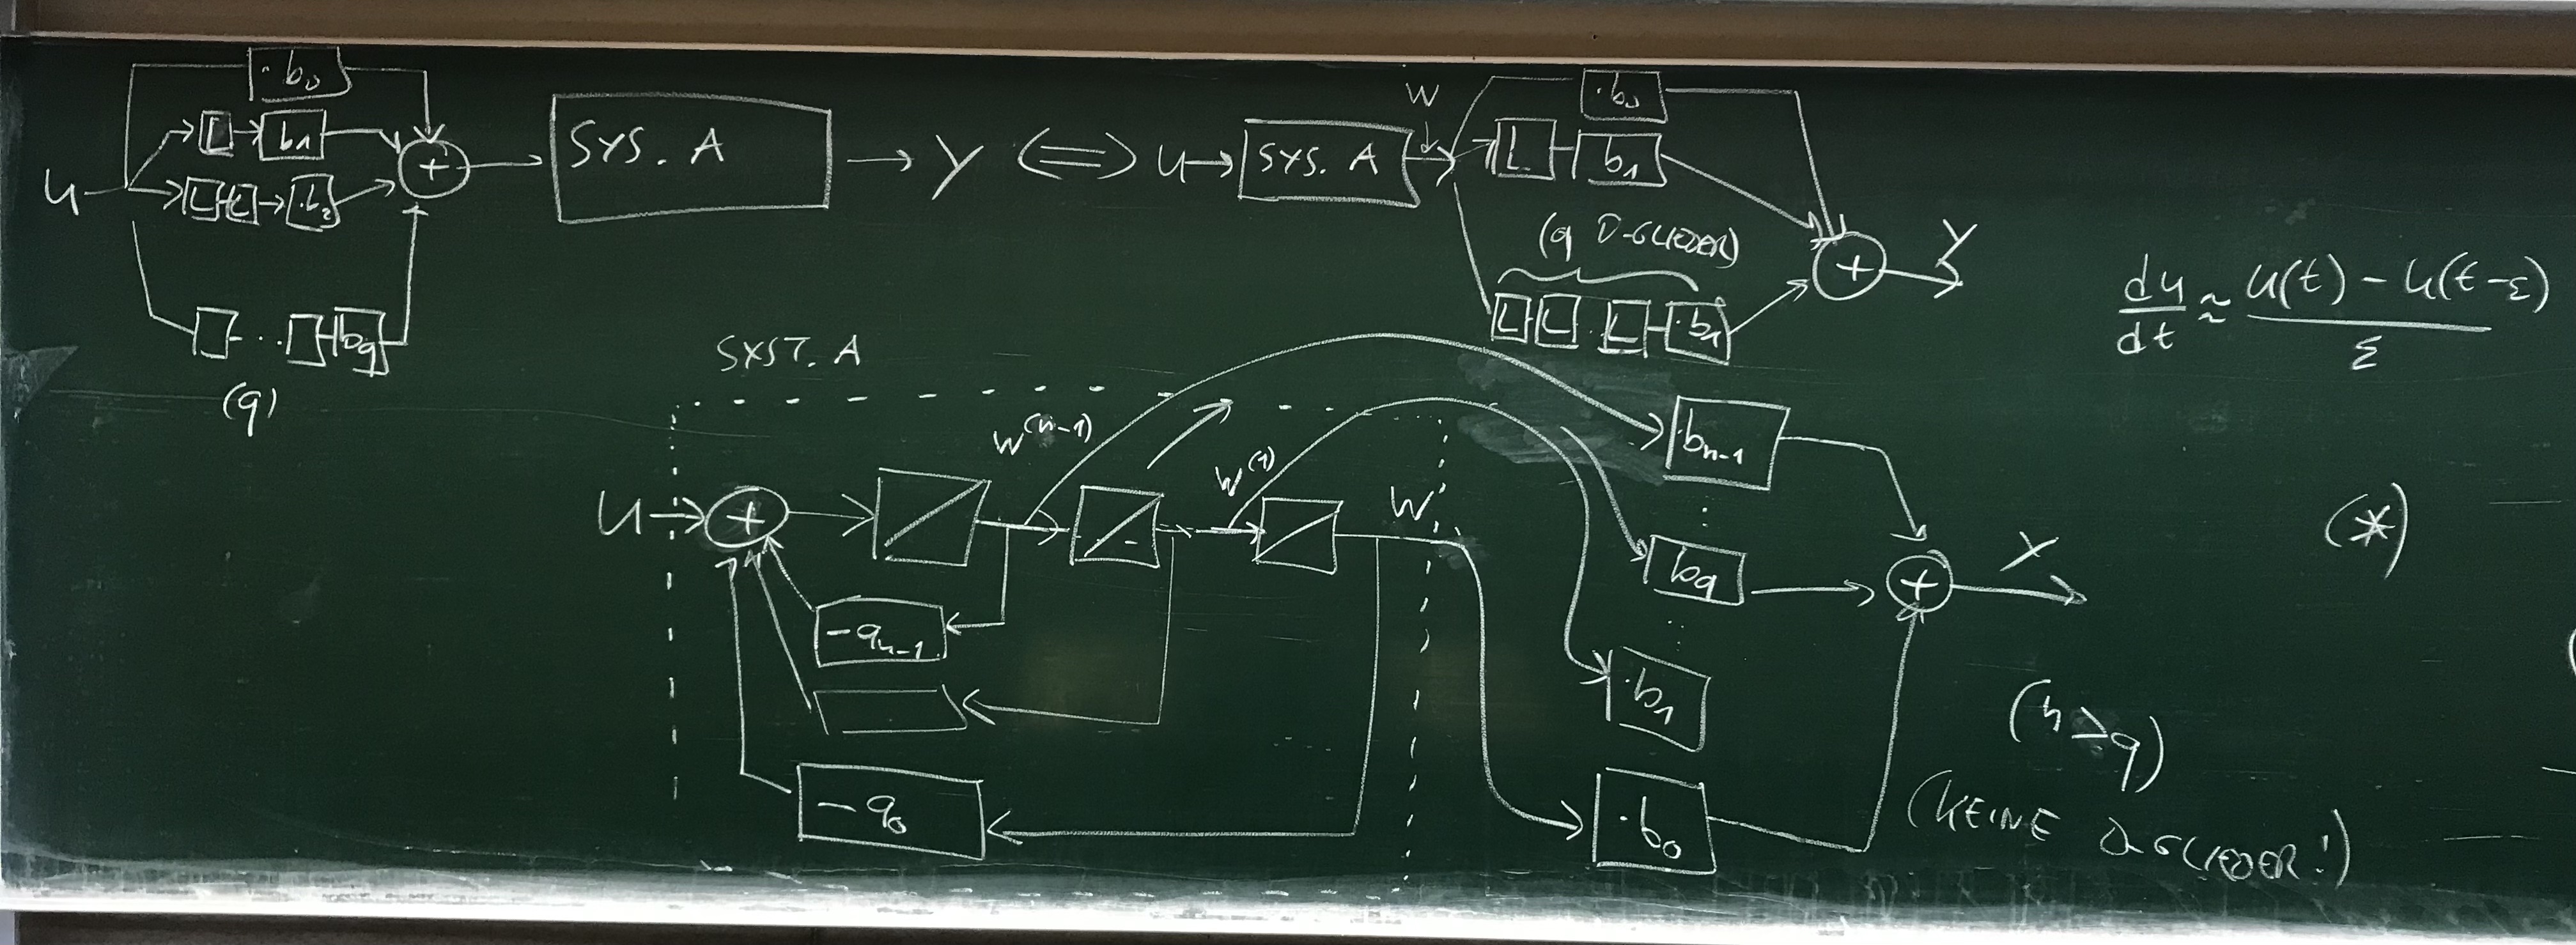 ·b₀
b₁
u
L L ·b₂
b_q
(q)
+
SYS. A
→ y ⟺ u →
SYS. A
w
·b₀
L b₁
(q D-GLIEDER)
L L . L ·b₁
+
y
du/dt ≈ (u(t) - u(t-ε))/ε
SYST. A
w⁽ⁿ⁻¹⁾
w⁽¹⁾
w
u
+
-a_{n-1}
-a₀
·b_{n-1}
⋮
b_q
⋮
·b₁
·b₀
+
y
(*)
(n > q)
(KEINE D-GLIEDER!)